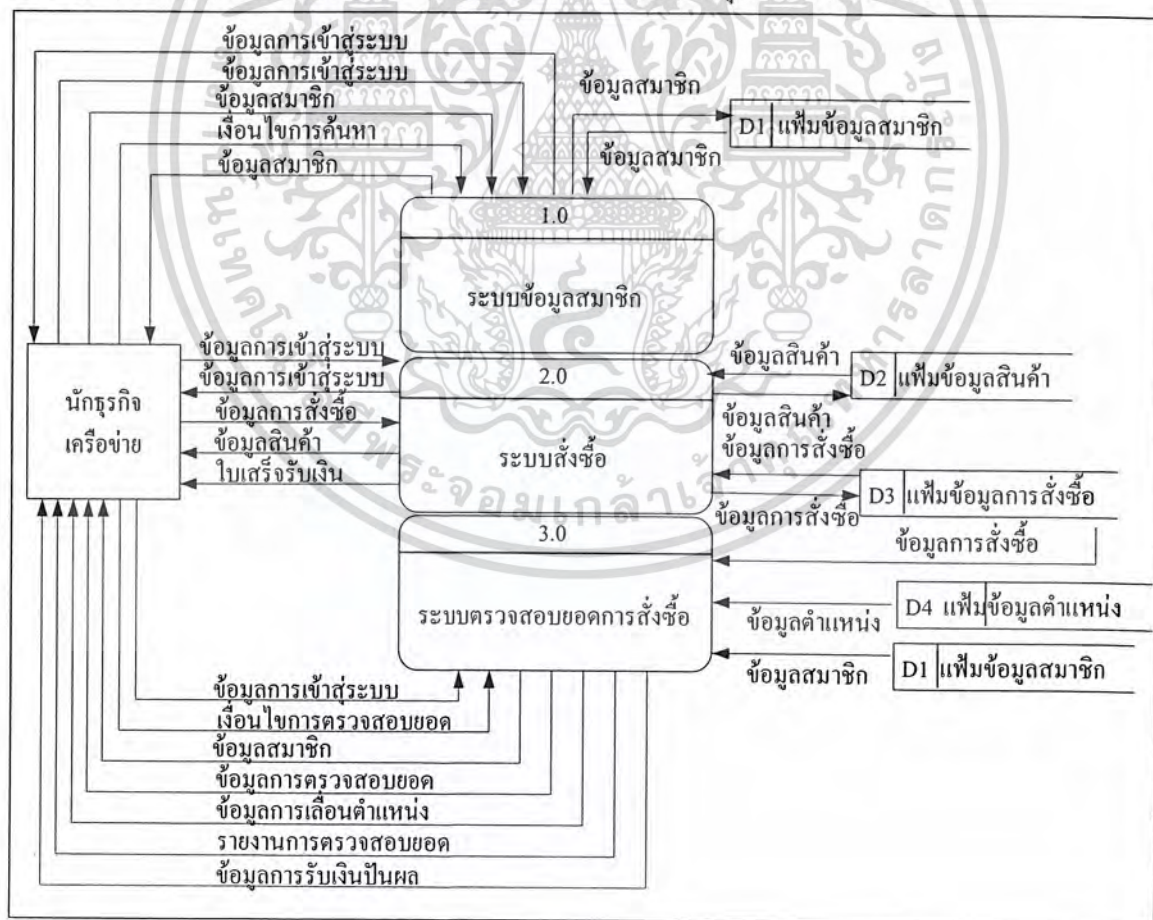 ข้อมูลการเข้าสู่ระบบ
ข้อมูลการเข้าสู่ระบบ
ข้อมูลสมาชิก
เงื่อนไขการค้นหา
ข้อมูลสมาชิก
ข้อมูลสมาชิก
D1 แฟ้มข้อมูลสมาชิก
ข้อมูลสมาชิก
1.0
ระบบข้อมูลสมาชิก
นักธุรกิจ
เครือข่าย
ข้อมูลการเข้าสู่ระบบ
ข้อมูลการเข้าสู่ระบบ
ข้อมูลการสั่งซื้อ
ข้อมูลสินค้า
ใบเสร็จรับเงิน
2.0
ระบบสั่งซื้อ
ข้อมูลสินค้า
D2 แฟ้มข้อมูลสินค้า
ข้อมูลสินค้า
ข้อมูลการสั่งซื้อ
D3 แฟ้มข้อมูลการสั่งซื้อ
ข้อมูลการสั่งซื้อ
ข้อมูลการสั่งซื้อ
3.0
ระบบตรวจสอบยอดการสั่งซื้อ
D4 แฟ้มข้อมูลตำแหน่ง
ข้อมูลตำแหน่ง
D1 แฟ้มข้อมูลสมาชิก
ข้อมูลสมาชิก
ข้อมูลการเข้าสู่ระบบ
เงื่อนไขการตรวจสอบยอด
ข้อมูลสมาชิก
ข้อมูลการตรวจสอบยอด
ข้อมูลการเลื่อนตำแหน่ง
รายงานการตรวจสอบยอด
ข้อมูลการรับเงินปันผล